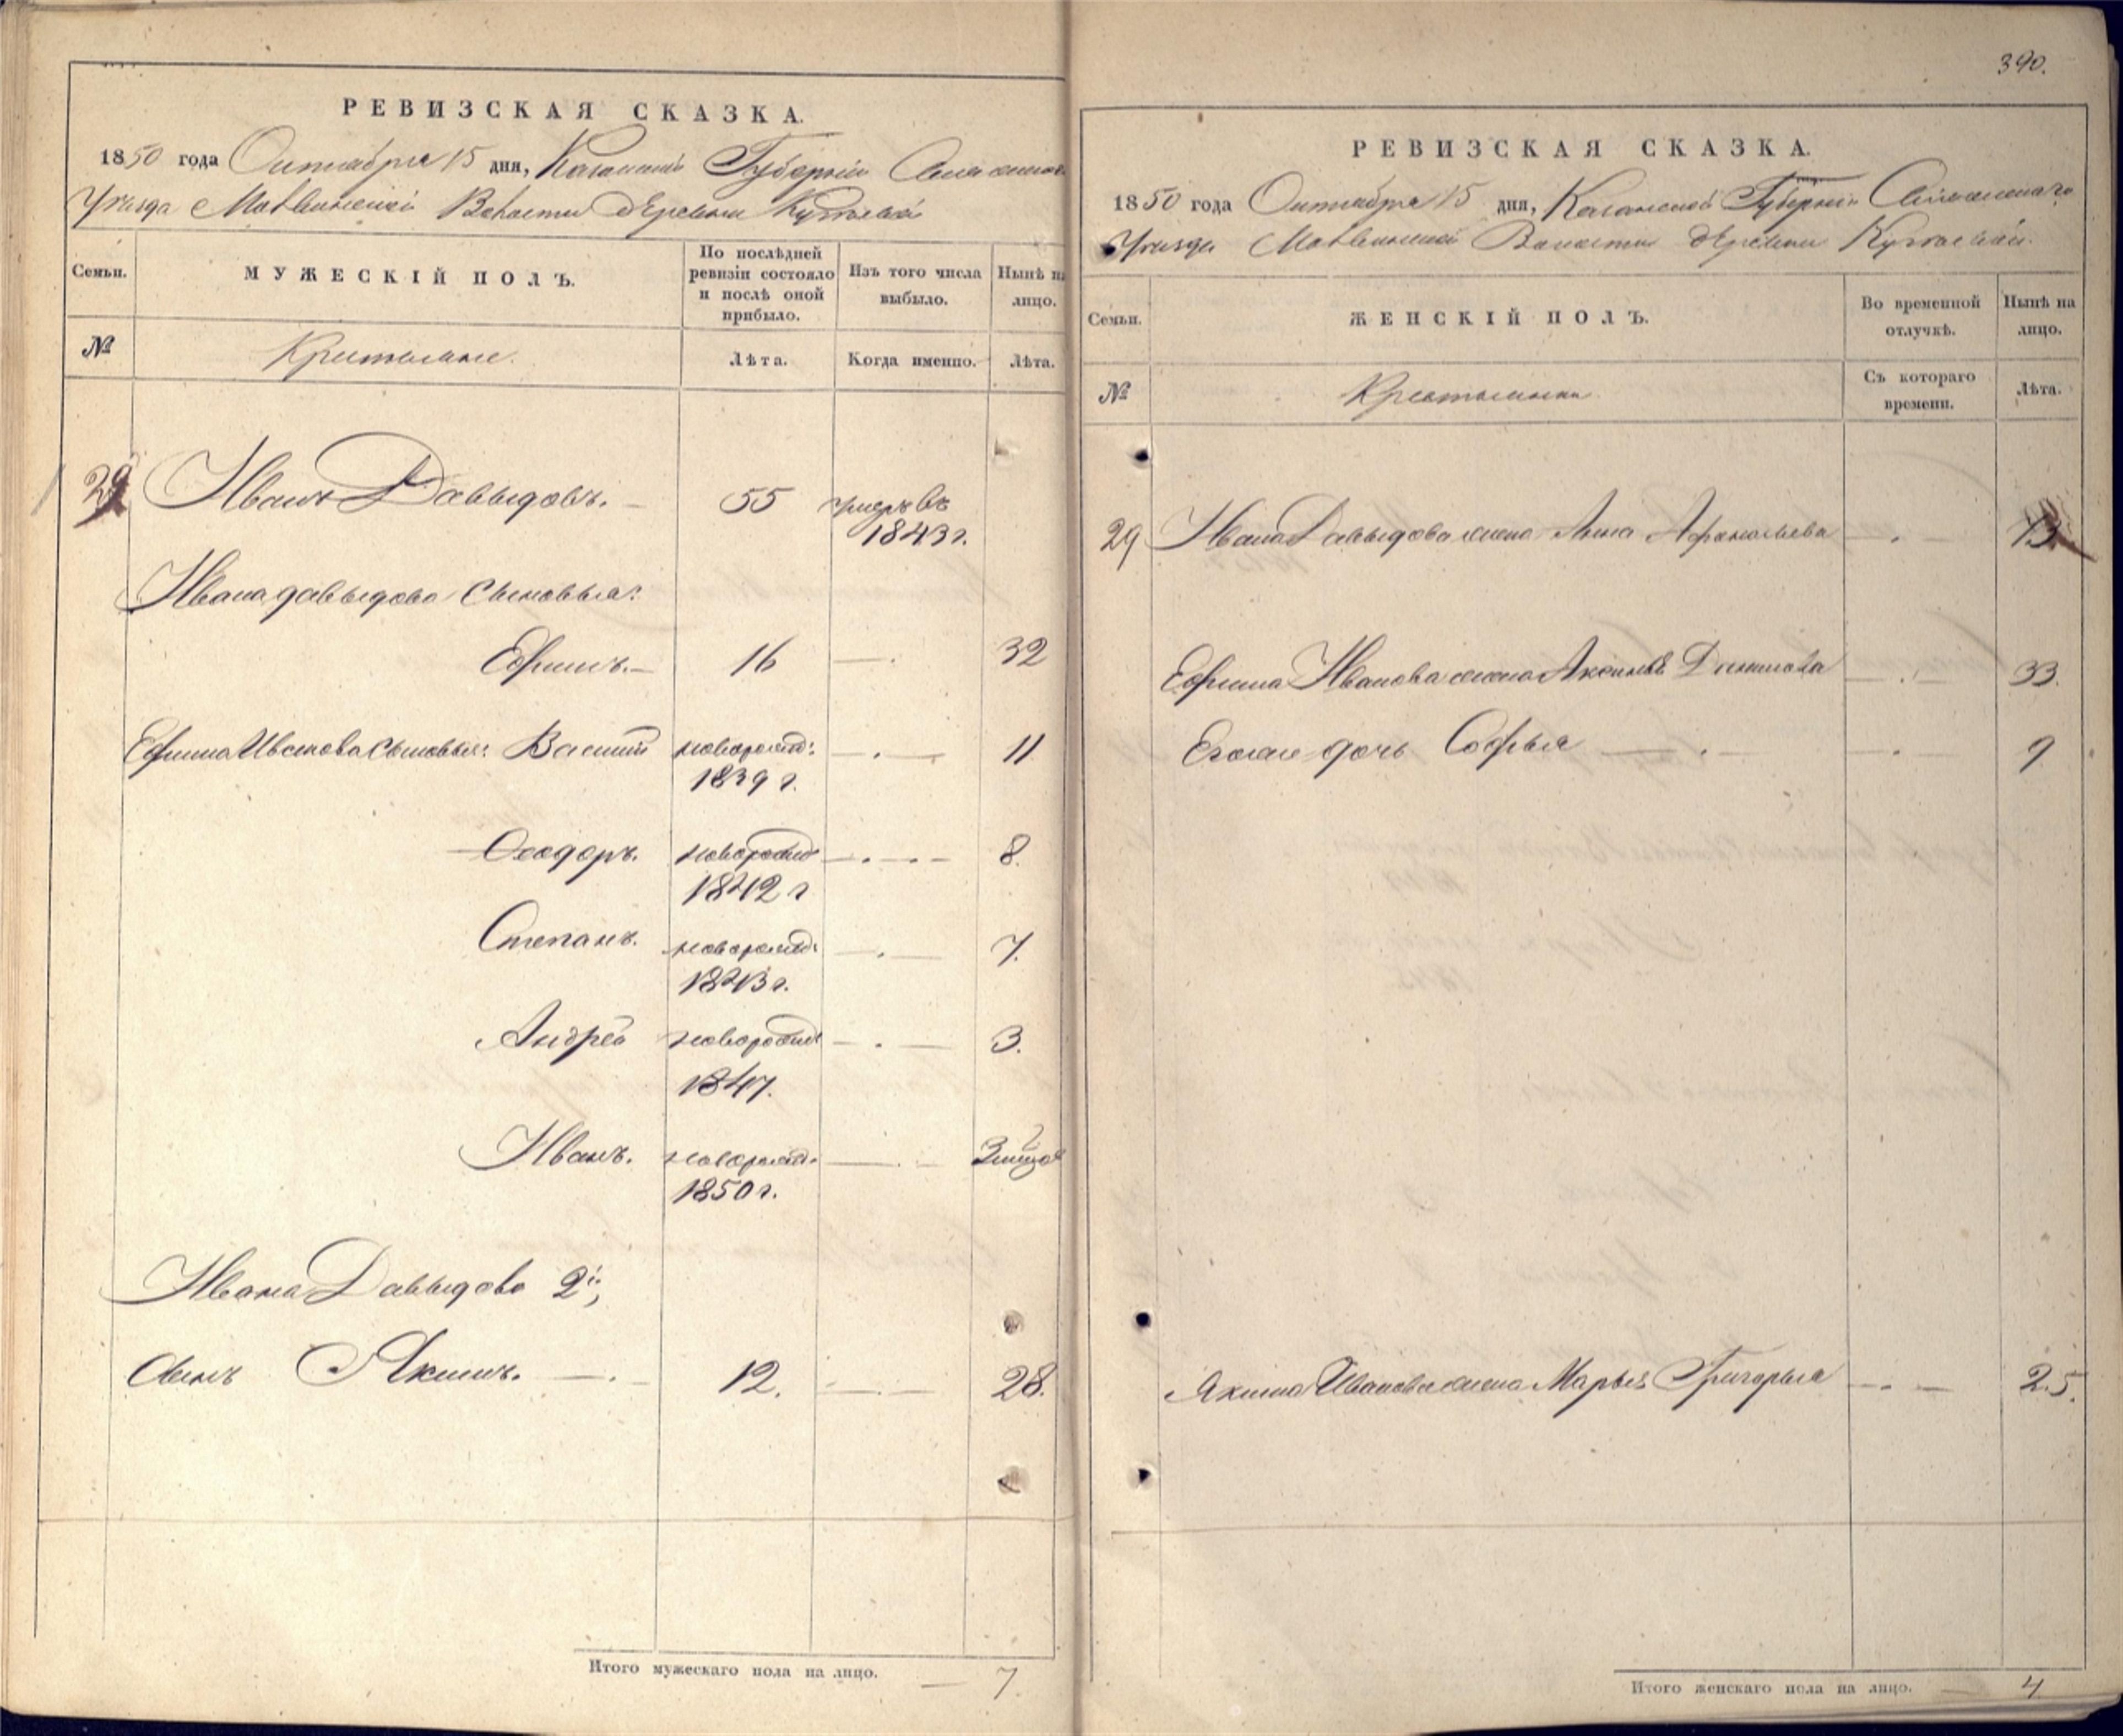 РЕВИЗСКАЯ СКАЗКА.
1850 года Октября 15 дня, Казанской Губернiи Спасскаго
Уезда Матвинской Волости деревни
Семьи.
МУЖЕСКІЙ ПОЛЪ.
По послѣдней ревизіи состояло и послѣ оной прибыло.
Изъ того числа выбыло.
Нынѣ на лицо.
№
Крестьяне.
Лѣта.
Когда именно.
Лѣта.
29 Иванъ Давыдовъ. 55 умеръ въ
1843 г.
Ивана давыдова сыновья:
Ефимъ. 16 32
Ефима Иванова сыновья: Василий новорожд: 11
1839 г.
Ѳеодоръ. новорожд 8.
1842 г
Степанъ. новорожд: 7.
1843 г.
Андрей новорожд 3.
1847.
Иванъ. новорожд.
1850 г.
Ивана Давыдова 2й,
сынъ Якимъ. 12. 28.
Итого мужескаго пола на лицо. 7.
390.
РЕВИЗСКАЯ СКАЗКА.
1850 года Октября 15 дня, Казанской Губернiи Спасскаго
Уезда Матвинской Волости деревни
Семьи.
ЖЕНСКІЙ ПОЛЪ.
Во временной отлучкѣ.
Нынѣ на лицо.
№
Крестьянки
Съ котораго времени.
Лѣта.
29 Ивана Давыдова жена Анна Афанасьева 73
Ефима Иванова жена Аксинья Данилова 33.
Егоже дочь Софья 9
Якима Иванова жена Марья Григорьева 25.
Итого женскаго пола на лицо. 4